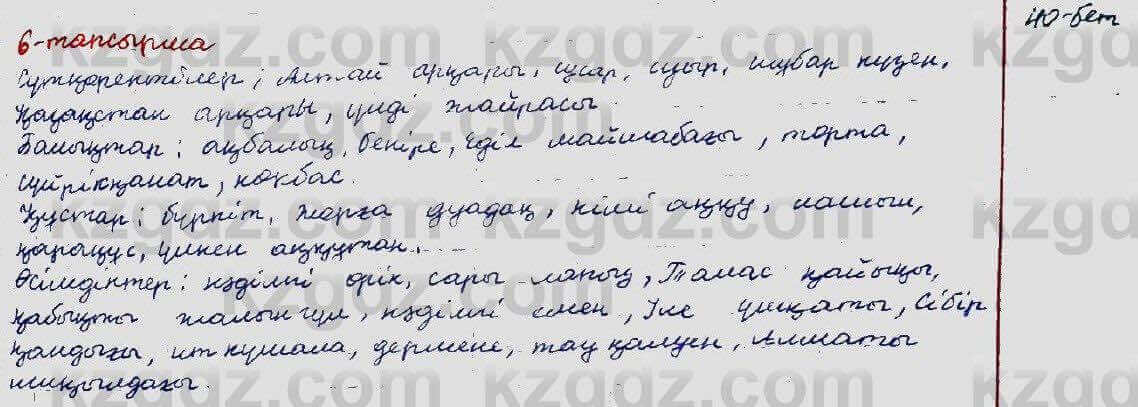 40-бет
6-тапсырма
Сүтқоректілер: Алтай арқары, құлар, сцыр, шұбар күзен,
Қазақстан арқары, үнді жайрасы
Балықтар: ақбалық, бекіре, Еділ майшабағы, торта,
сүйрікқанат, көкбас.
Құстар: бүркіт, жорға дуадақ, кіші аққу, лашын,
қарақұс, үлкен аққұтан.
Өсімдіктер: кәдімгі өрік, сары лапыз, Талас қайыңы,
қабықты жалынгүл, кәдімгі емен, Іле ұшқаты, Сібір
қандығы, иткүшала, дермене, тау қалуен, Алматы
шиқылдағы.
kzgdz.com